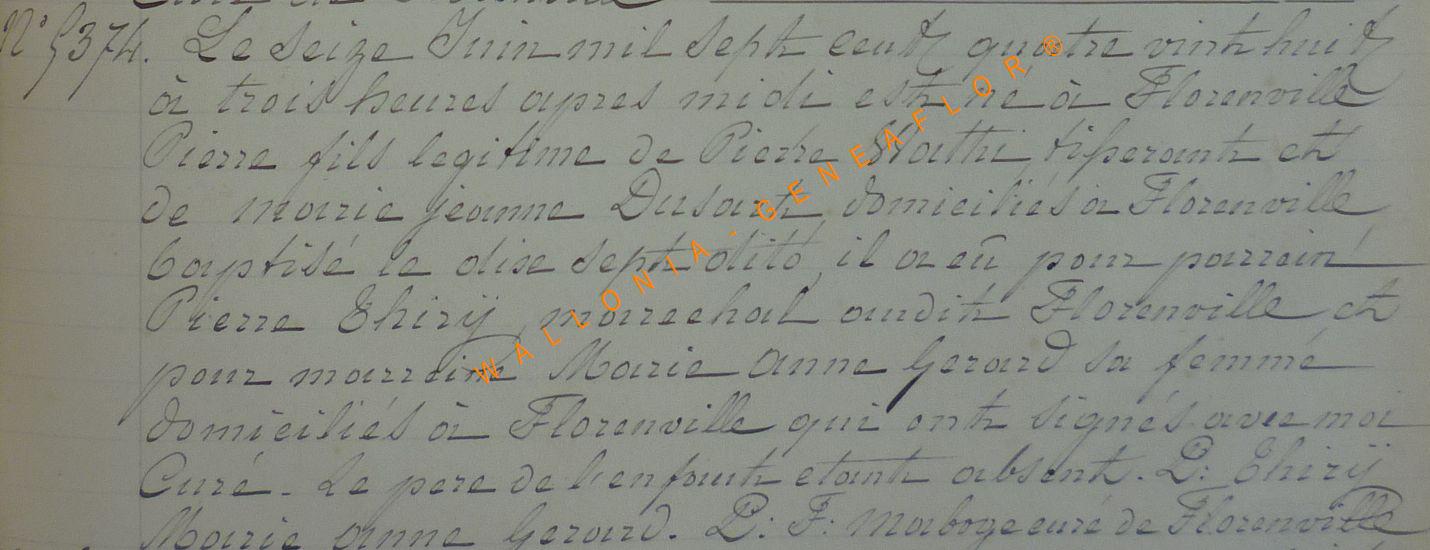 Nº 5374. Le seize Juin mil sept cent quatre vint huit
à trois heures apres midi est né à Florenville
Pierre fils legitime de Pierre Mathi, tisserant et
de marie jeanne Dusart, domiciliés à Florenville
baptisé le dix sept dito, il a eû pour parrein
Pierre Thirÿ marechal audit Florenville et
pour marreine Marie Anne Gerard sa femme
domiciliés à Florenville qui ont signés avec moi
Curé. Le pere de l'enfant etant absent. P: Thirÿ
Marie anne Gerard. P: F: Maboge curé de Florenville
WALLONIA - GENEAFLOR®